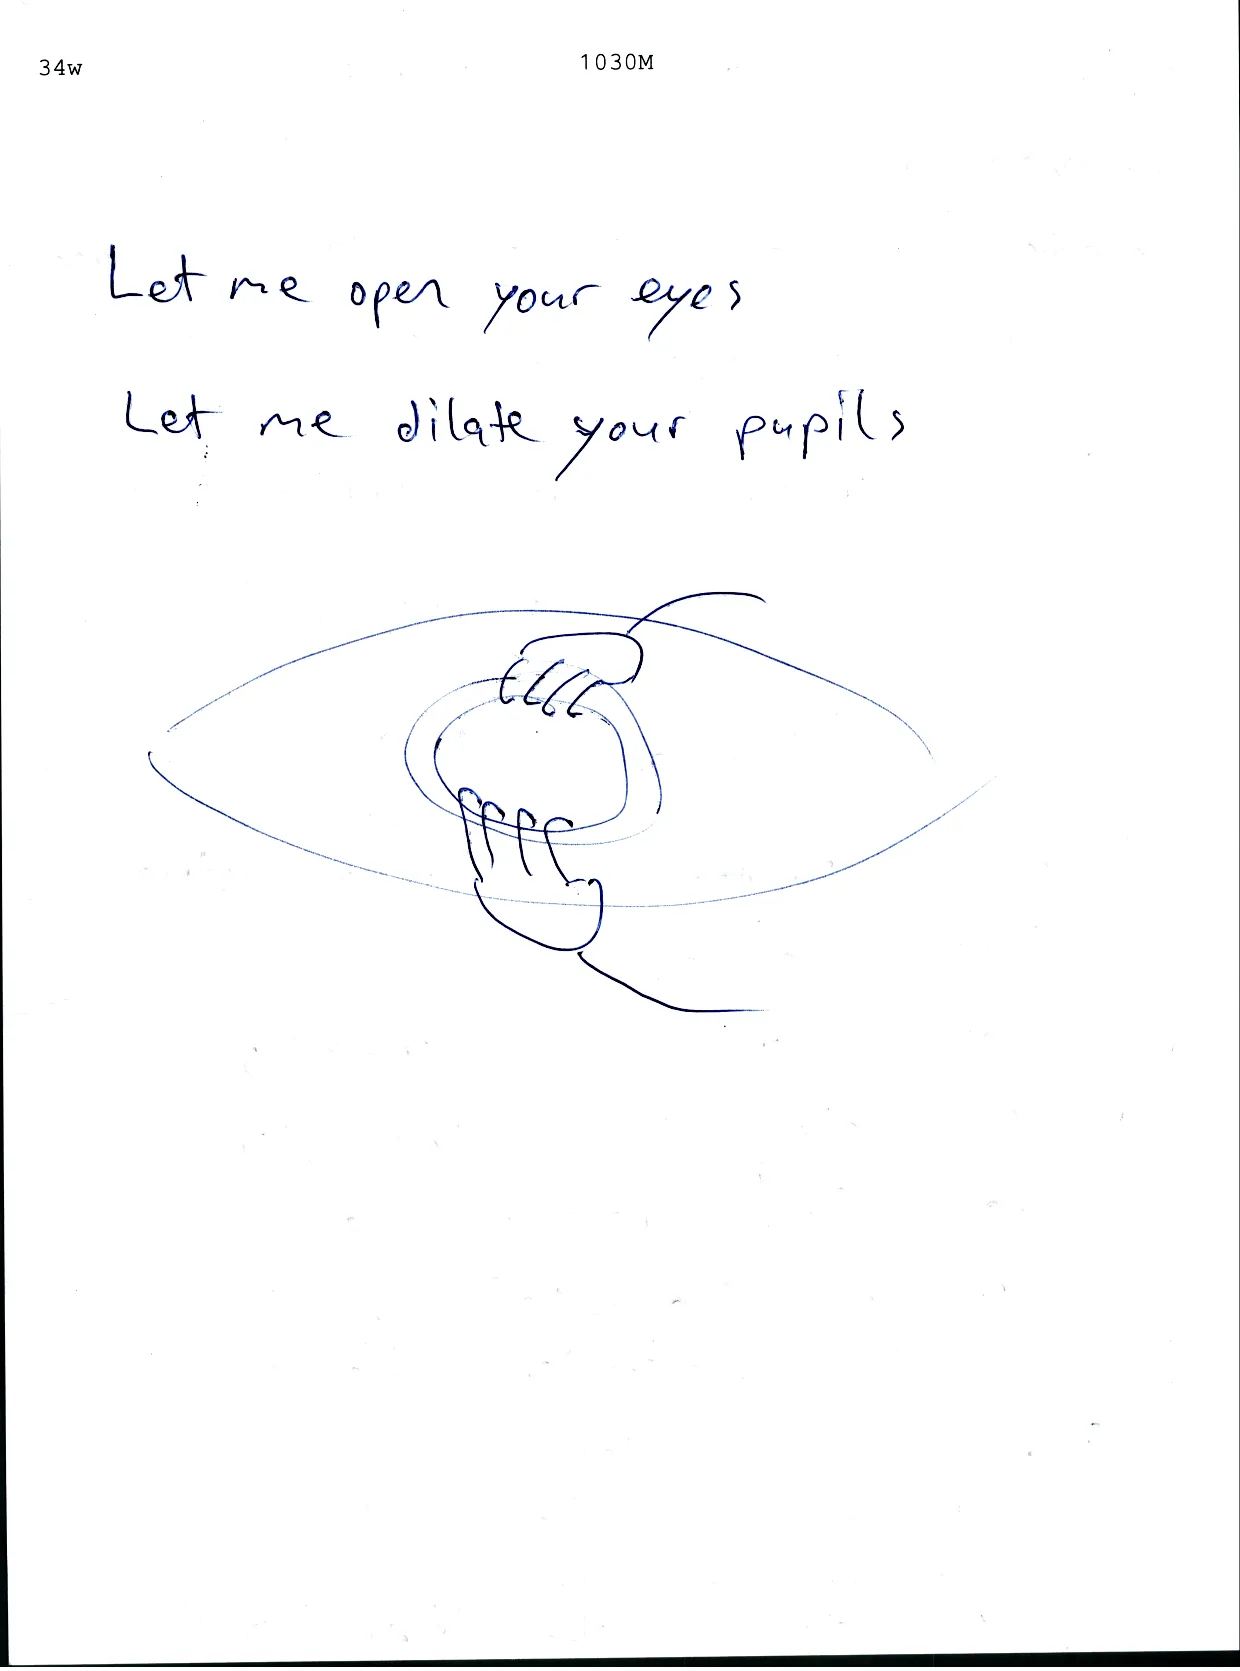 34w 1030M
Let me open your eyes
Let me dilate your pupils